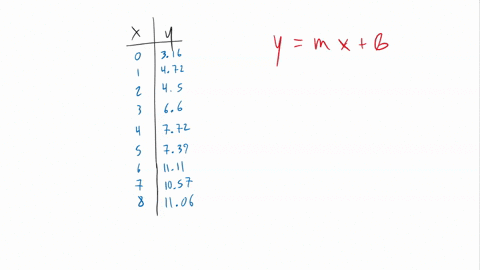 x y
0 3.16
1 4.72
2 4.5
3 6.6
4 7.72
5 7.39
6 11.11
7 10.57
8 11.06
y = mx + B